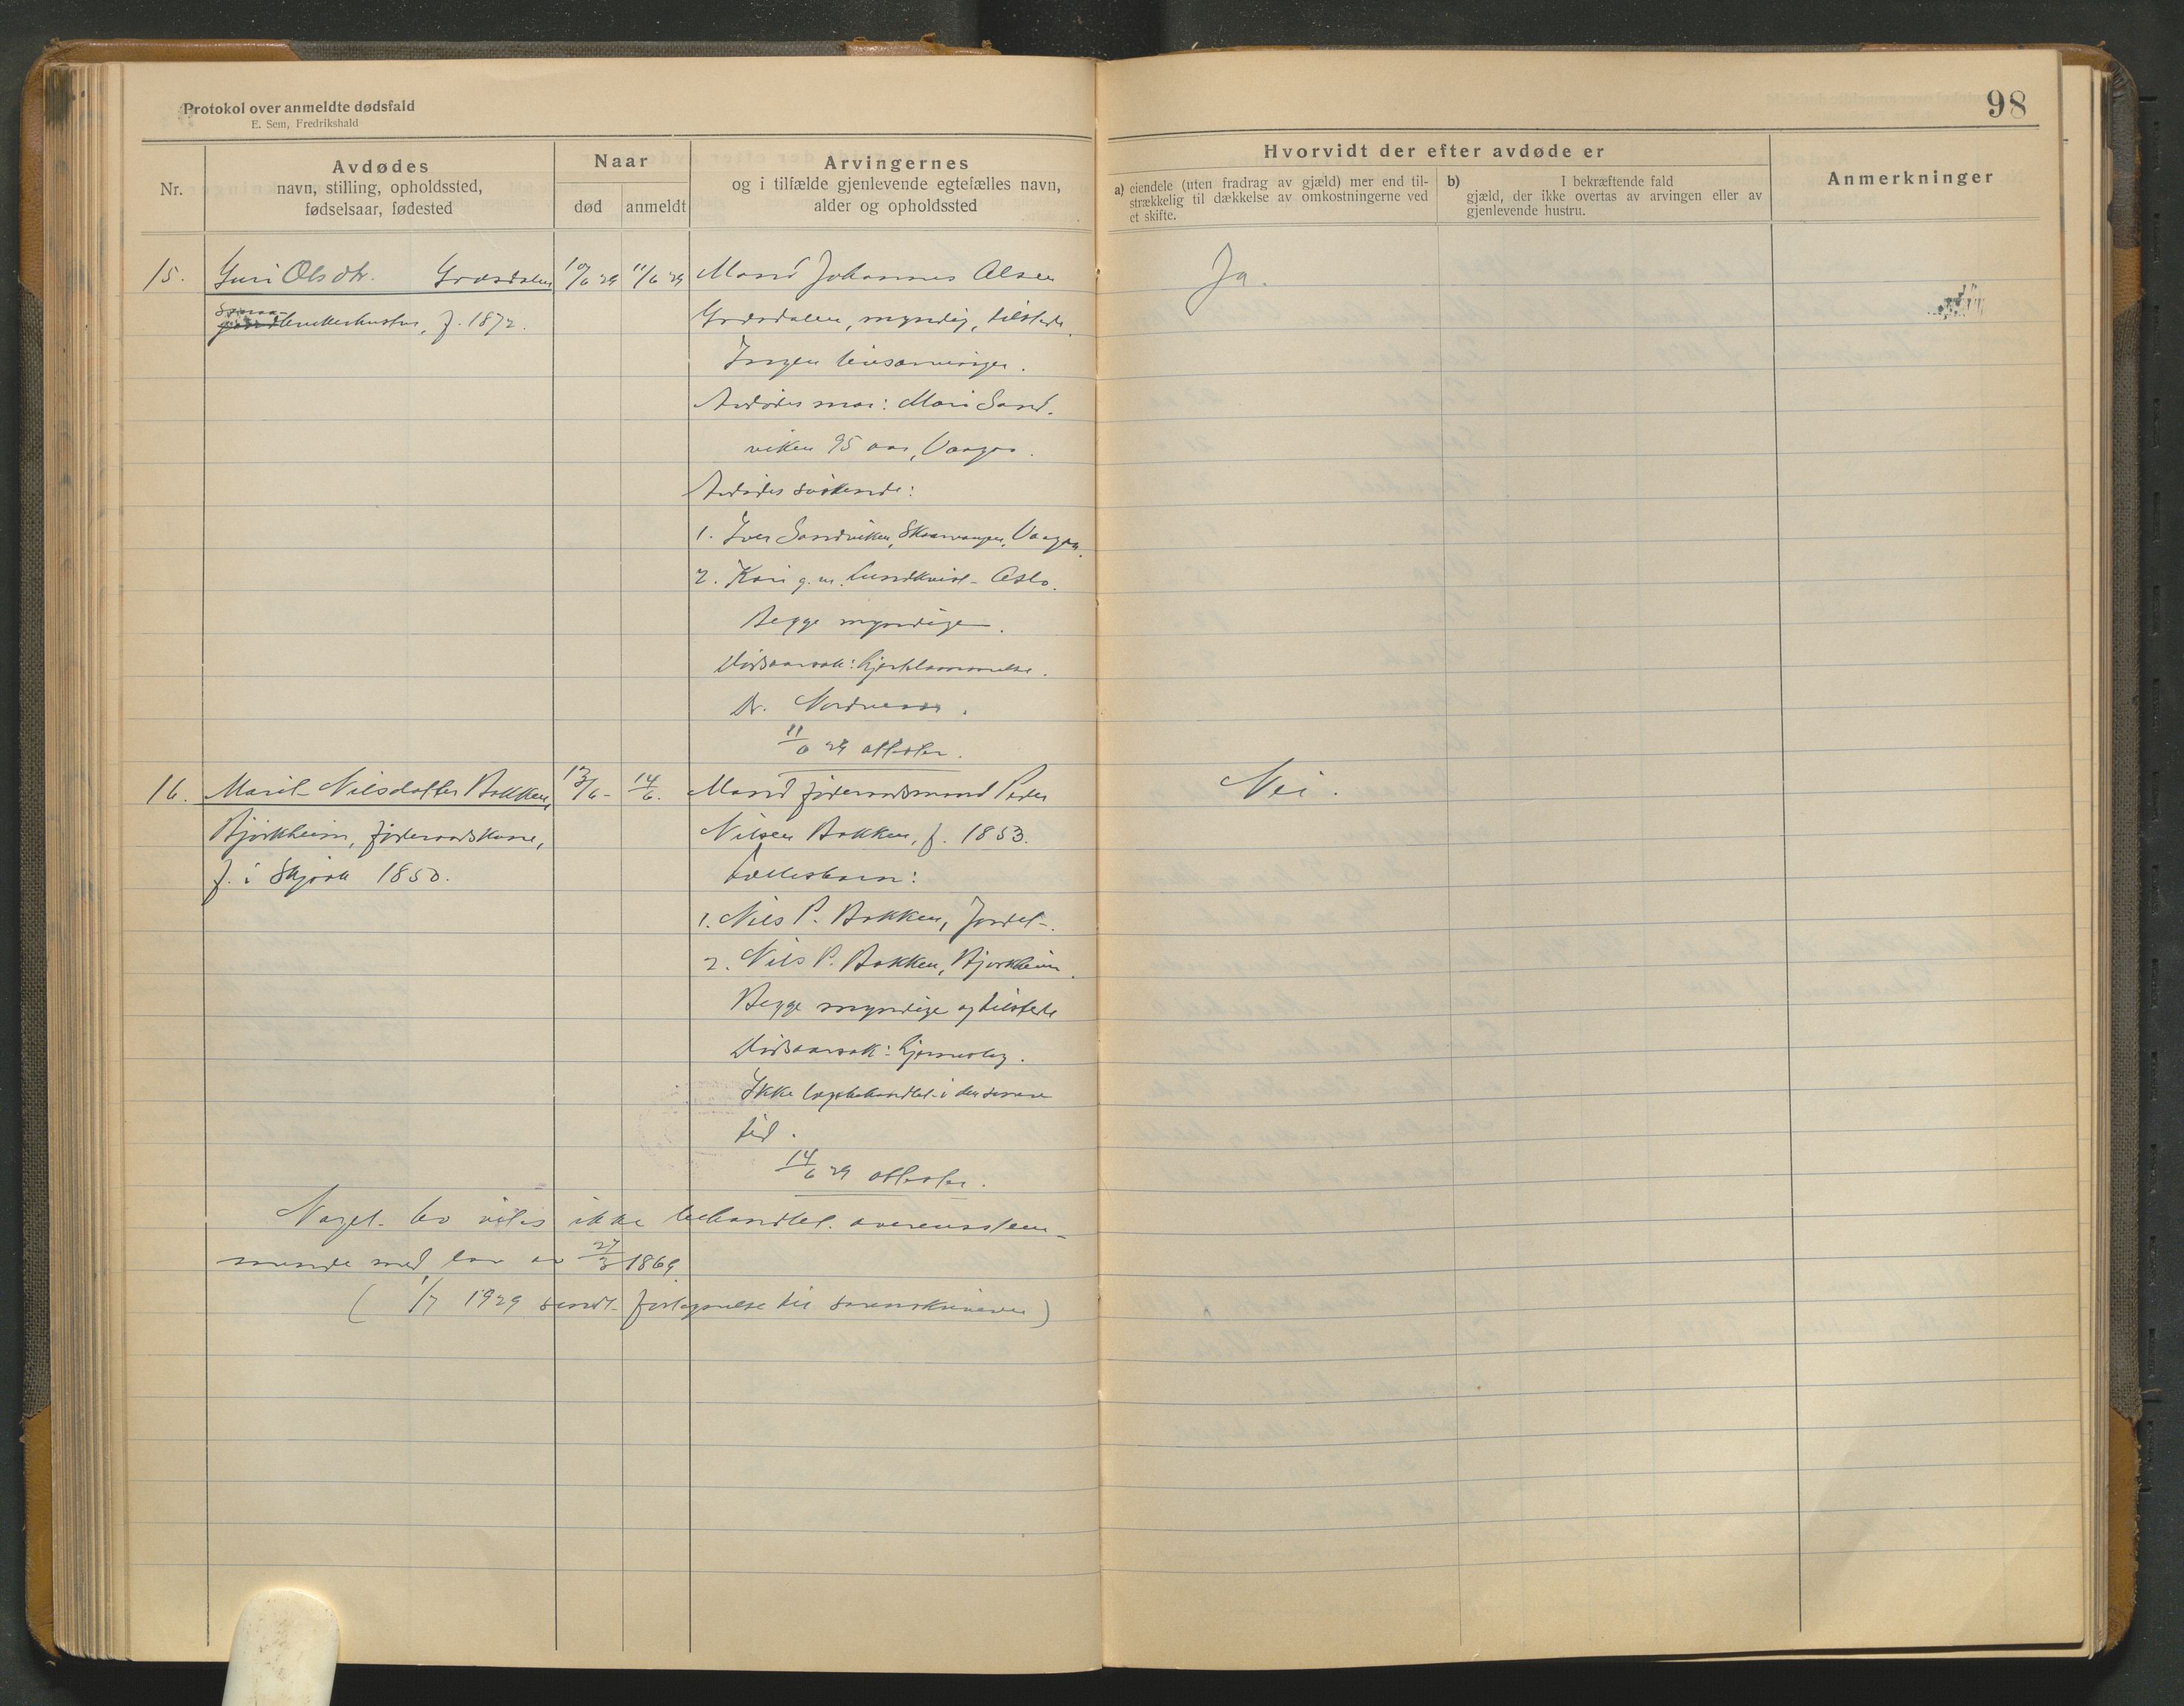 Protokol over anmeldte dødsfald
E. Sem, Fredrikshald
98
Nr.
Avdødes
navn, stilling, opholdssted,
fødselsaar, fødested
Naar
død
anmeldt
Arvingernes
og i tilfælde gjenlevende egtefælles navn,
alder og opholdssted
Hvorvidt der efter avdøde er
a) eiendele (uten fradrag av gjæld) mer end til-
strækkelig til dækkelse av omkostningerne ved
et skifte.
b) I bekræftende fald
gjæld, der ikke overtas av arvingen eller av
gjenlevende hustru.
Anmerkninger
15. Guri Olsdtr. Grøsdalen 10/6 29 11/6 29 Mand Johannes Olsen Ja.
brukerhustru, f. 1872. Grøsdalen, myndig, tilstede.
Ingen livsarvinger.
Avdødes mor: Mari Sand-
viken 95 aar, Vaagaa.
Avdødes søskende:
1. Iver Sandviken, Skaarvangen, Vaagaa.
2. Kari g.m. Lundkvist - Oslo.
Begge myndige.
Dødsaarsak: Hjertelammelse.
Dr.
11/6 29 attester.
16. Marit Nilsdatter Bakken, 13/6 - 14/6. Mand føderaadsmand Peder Nei.
Bjørkheim, føderaadskone, Nilsen Bakken, f. 1853.
f. i Skjaak 1850. Fællesbarn:
1. Nils P. Bakken, Jordet.
2. Nils P. Bakken, Bjørkheim.
Begge myndige og tilstede
Dødsaarsak: Hjerneslag.
Ikke lægebehandlet i den senere
tid.
14/6 29 attester.
Noget bo vites ikke behandlet overensstem-
mende med lov av 27/3 1869.
( 1/7 1929 sendt fortegnelse til sorenskriveren )